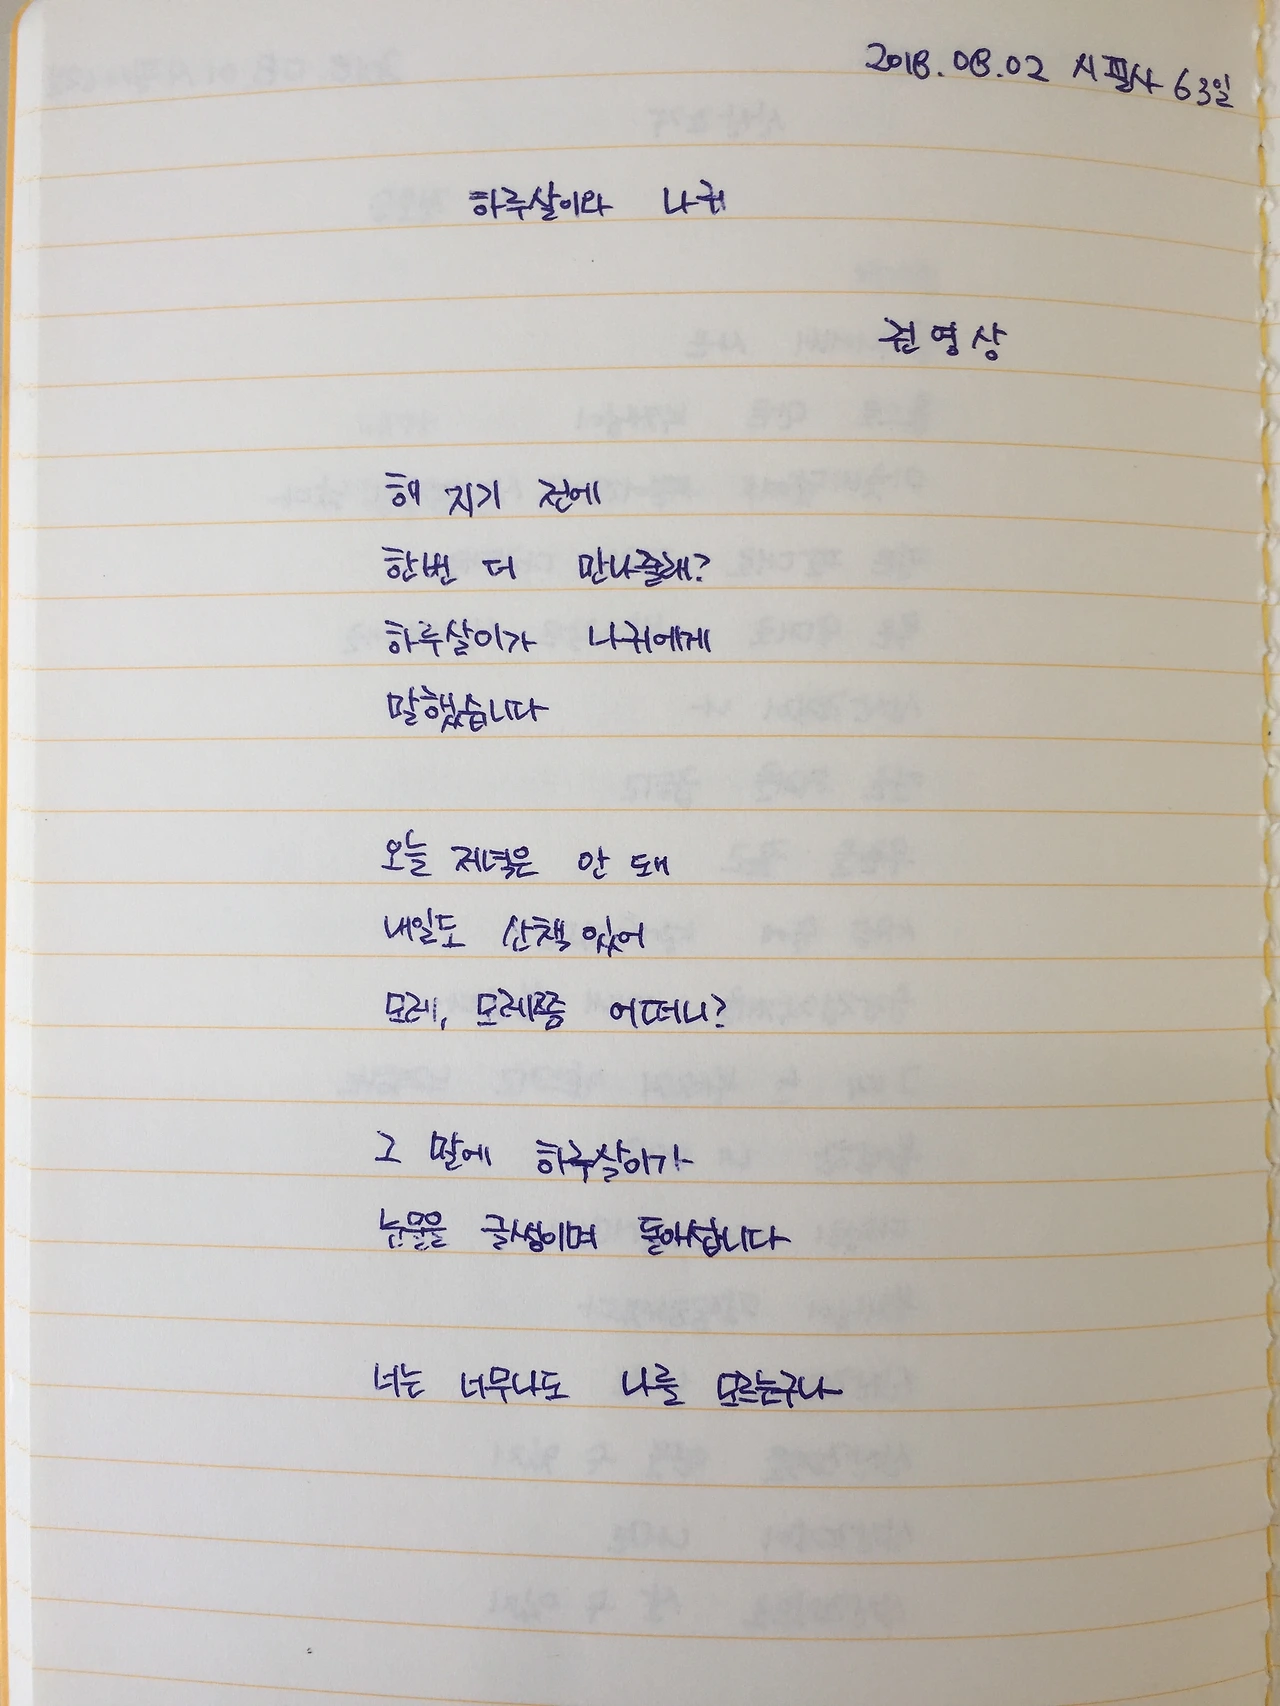 2018.08.02 시필사 63일
하루살이와 나귀
권영상
해 지기 전에
한번 더 만나줄래?
하루살이가 나귀에게
말했습니다
오늘 저녁은 안 돼
내일도 산책 있어
모레, 모레쯤 어떠니?
그 말에 하루살이가
눈물을 글썽이며 돌아섭니다
너는 너무나도 나를 모르는구나